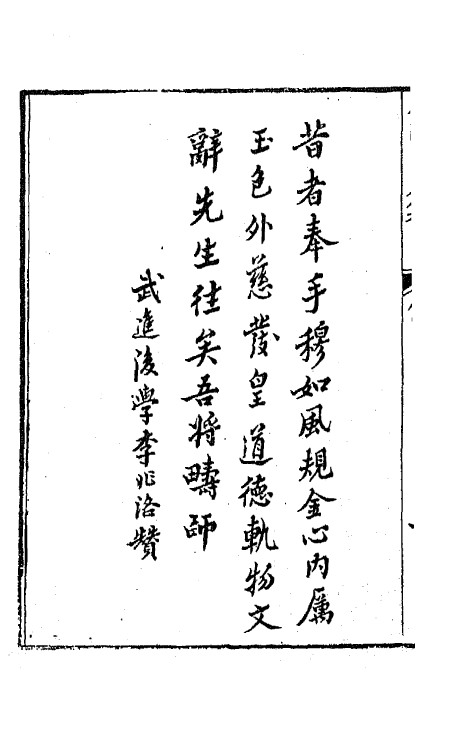 昔者奉手穆如風規金心內厲
玉色外慈發皇道德軌物文
辭先生往矣吾將疇師
武進後學李兆洛贊